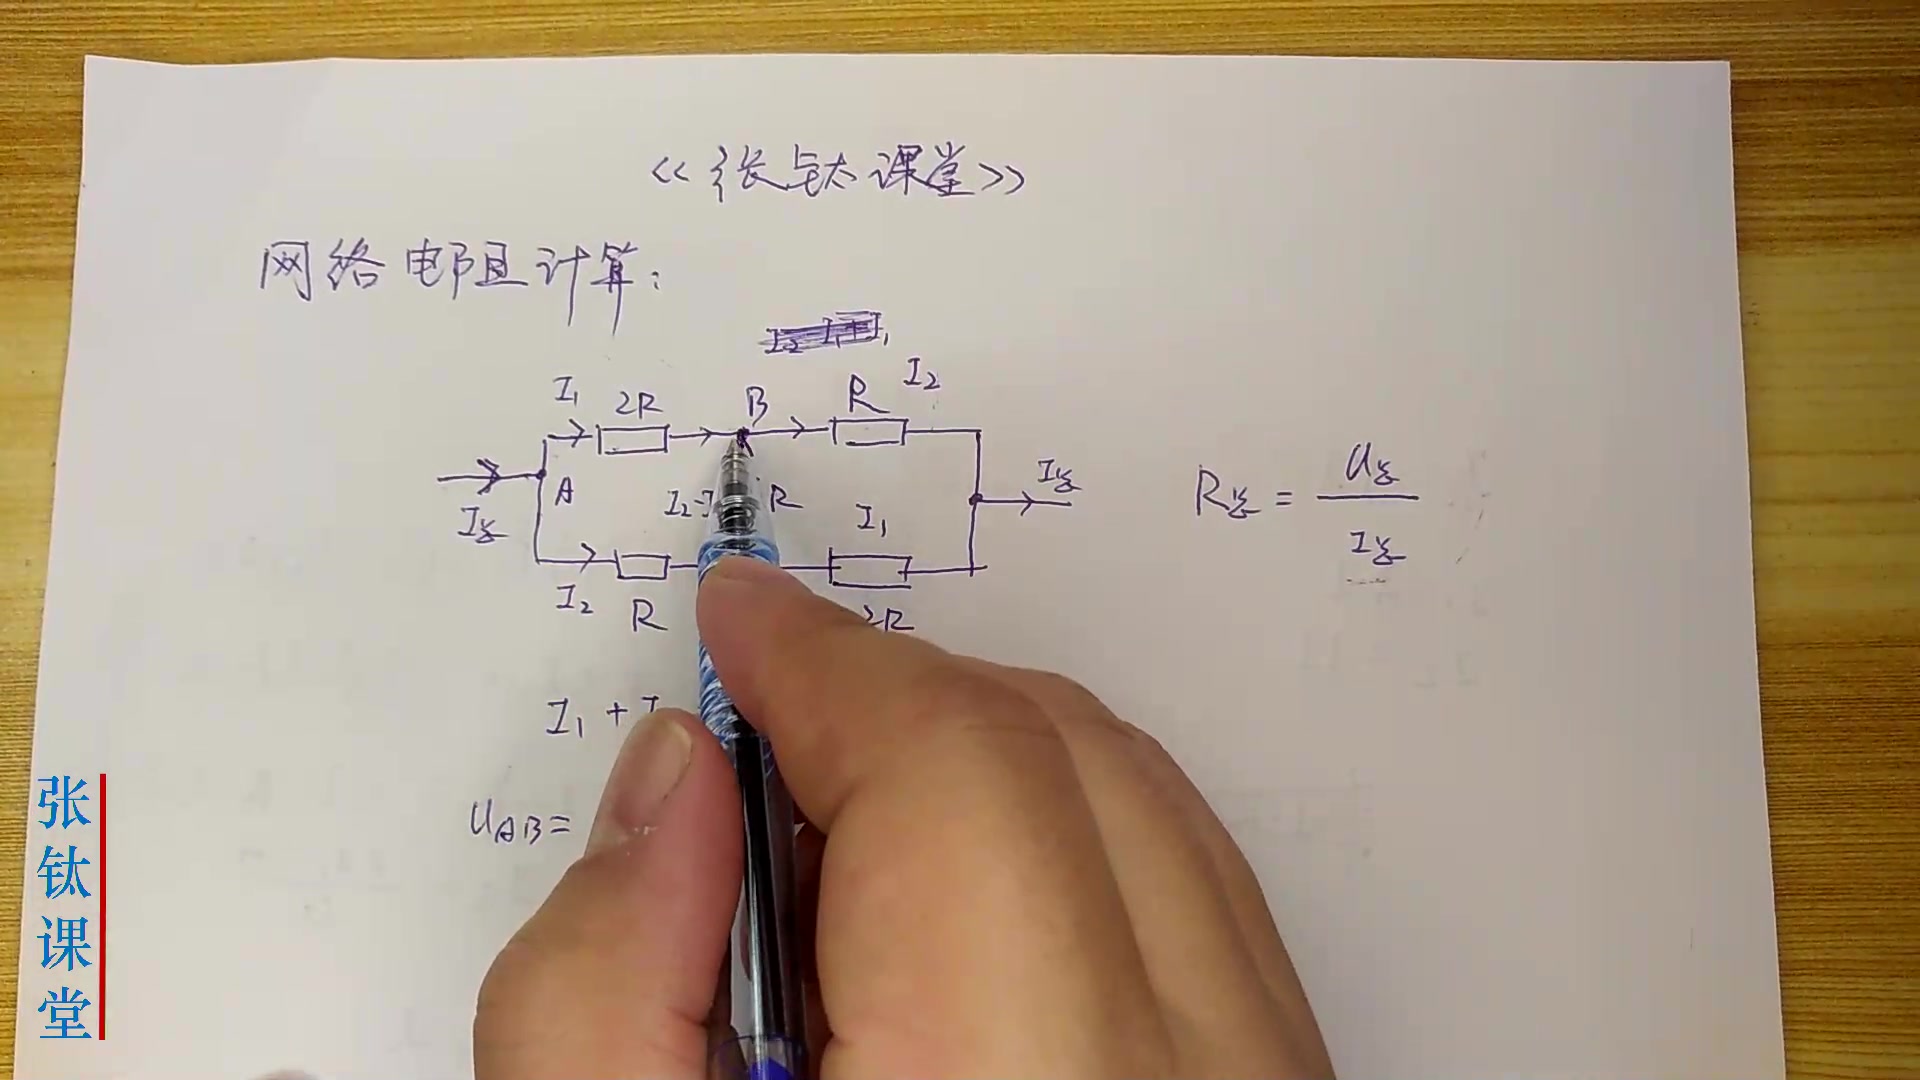 《张钛课堂》
网络电阻计算:
I₁ 2R B R I₂
I总 A I₂-I R I₁ I总
I₂ R 2R
R总 = U总 / I总
I₁ + I
U_AB =
张钛课堂